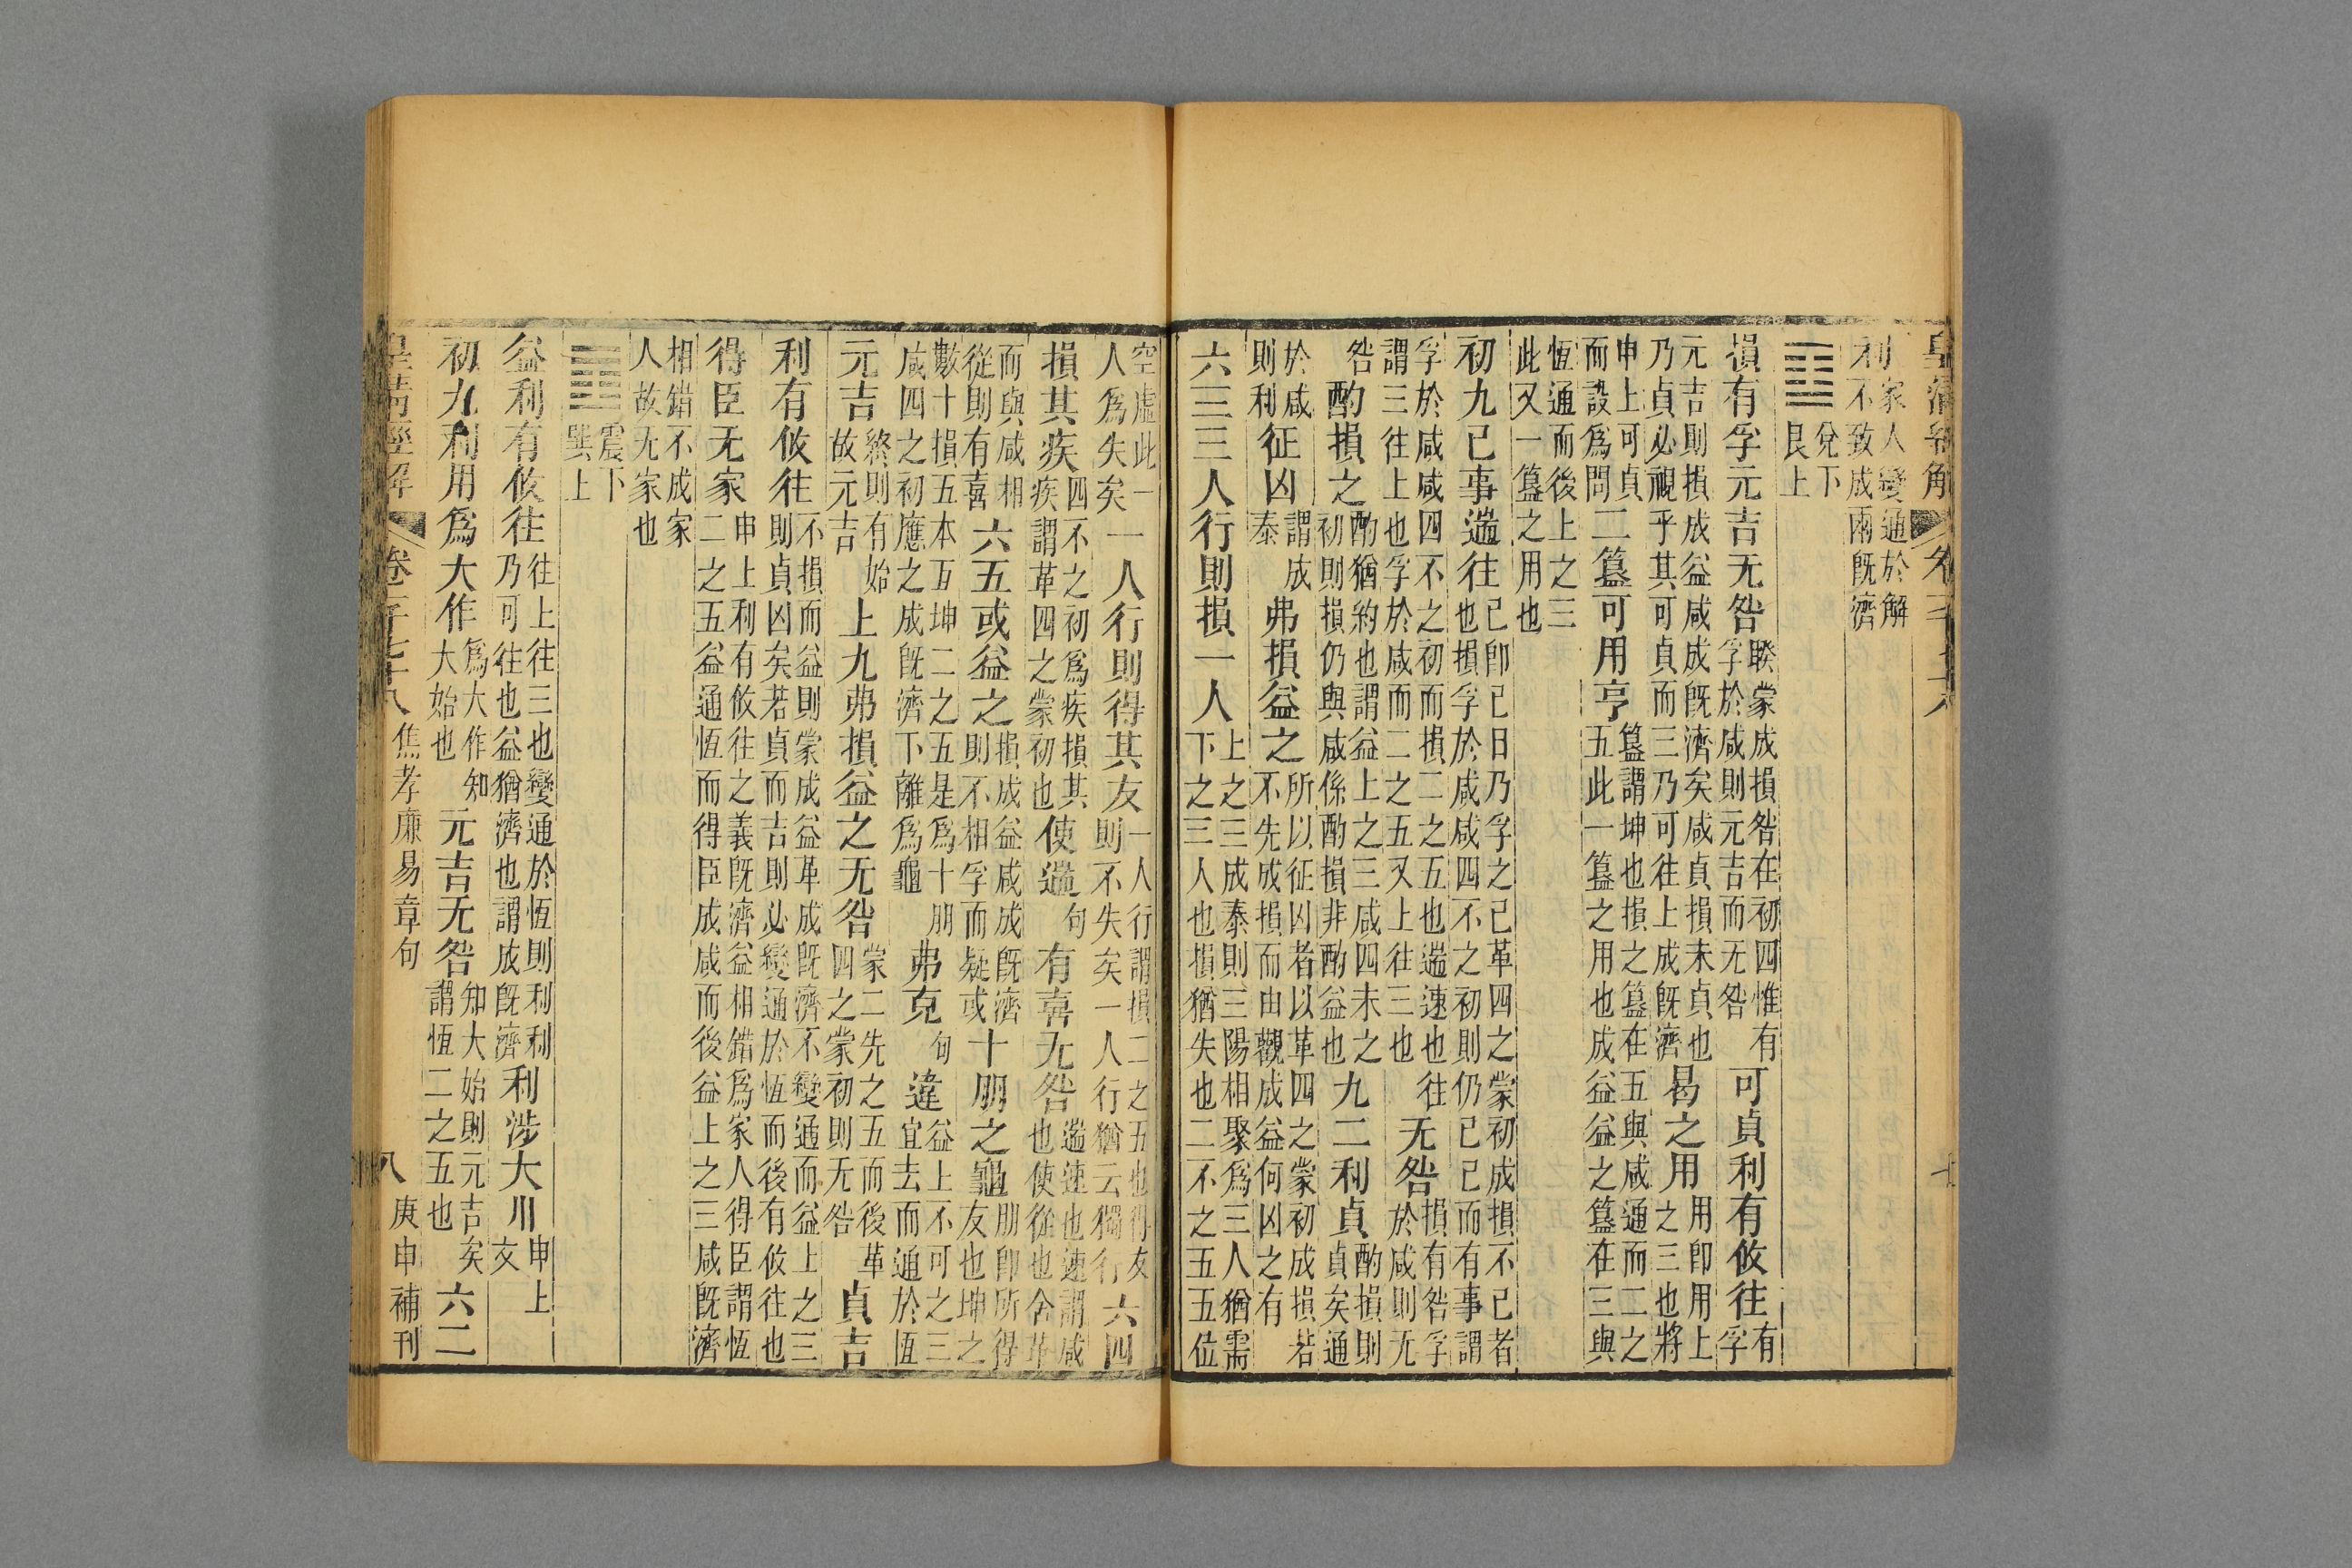 皇清經解 卷千七十八 七
利家人變通於解不致成兩既濟
䷨兌下艮上
損有孚元吉无咎睽蒙成損咎在初四惟有孚於咸則元吉而无咎可貞利有攸往有孚
元吉則損成益咸成既濟矣咸貞損未貞也乃貞必視乎其可貞而三乃可往上成既濟曷之用用卽用上之三也將
申上可貞而設爲問二簋可用亨簋謂坤也損之簋在五與咸通而二之五此一簋之用也成益益之簋在三與
恆通而後上之三此又一簋之用也
初九已事遄往已卽已日乃孚之已革四之蒙初成損不已者也損孚於咸咸四不之初則仍已已而有事謂
孚於咸咸四不之初而損二之五也遄速也往謂三往上也孚於咸而二之五又上往三也无咎損有咎孚於咸則无
咎酌損之酌猶約也謂益上之三咸四未之初則損仍與咸係酌損非酌益也九二利貞酌損則貞矣通
於咸則利征凶謂成泰弗損益之所以征凶者以革四之蒙初成損若不先成損而由觀成益何凶之有
六三三人行則損一人上之三成泰則三陽相聚爲三人猶需下之三人也損猶失也二不之五五位
空虛此一人爲失矣一人行則得其友一人行謂損二之五也得友則不失矣一人行猶云獨行六四
損其疾四不之初爲疾損其疾謂革四之蒙初也使遄句有喜无咎遄速也速謂咸也使從也舍革
而與咸相從則有喜六五或益之損成益咸成既濟則不相孚而疑或十朋之龜朋卽所得友也坤之
數十損五本互坤二之五是爲十朋咸四之初應之成既濟下離爲龜弗克句違益上不可之三宜去而通於恆
元吉終則有始故元吉上九弗損益之无咎蒙二先之五而後革四之蒙初則无咎貞吉
利有攸往不損而益則蒙成益革成既濟不變通而益上之三則貞凶矣若貞而吉則必變通於恆而後有攸往也
得臣无家申上利有攸往之義既濟益相錯爲家人得臣謂恆二之五益通恆而得臣成咸而後益上之三咸既濟
相錯不成家人故无家也
䷩震下巽上
益利有攸往往上往三也變通於恆則利利乃可往也益猶濟也謂成既濟利涉大川申上文
初九利用爲大作爲大作知大始也元吉无咎知大始則元吉矣謂恆二之五也六二
皇清經解 卷千七十八 焦孝廉易章句 八 庚申補刊